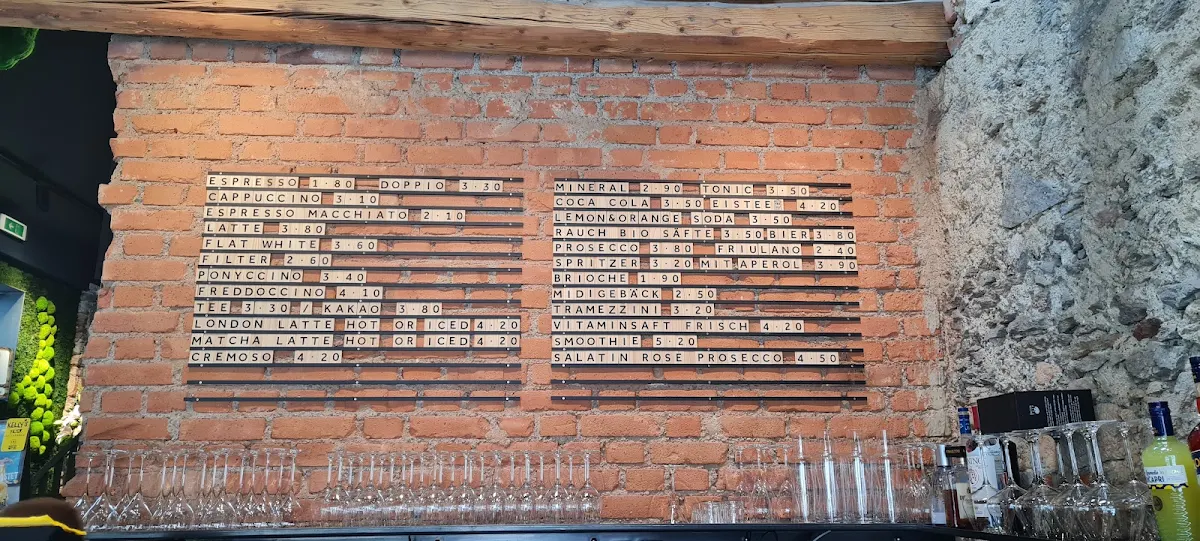 ESPRESSO 1·80 DOPPIO 3·30
CAPPUCCINO 3·10
ESPRESSO MACCHIATO 2·10
LATTE 3·80
FLAT WHITE 3·60
FILTER 2·60
PONYCCINO 3·40
FREDDOCCINO 4·10
TEE 3·30 / KAKAO 3·80
LONDON LATTE HOT OR ICED 4·20
MATCHA LATTE HOT OR ICED 4·20
CREMOSO 4·20
MINERAL 2·90 TONIC 3·50
COCA COLA 3·50 EISTEE 4·20
LEMON&ORANGE SODA 3·50
RAUCH BIO SÄFTE 3·50 BIER 3·80
PROSECCO 3·80 FRIULANO 2·40
SPRITZER 3·20 MIT APEROL 3·90
BRIOCHE 1·90
MIDIGEBÄCK 2·50
TRAMEZZINI 3·20
VITAMINSAFT FRISCH 4·20
SMOOTHIE 5·20
SALATIN ROSE PROSECCO 4·50
KELLY'S
CAPRI